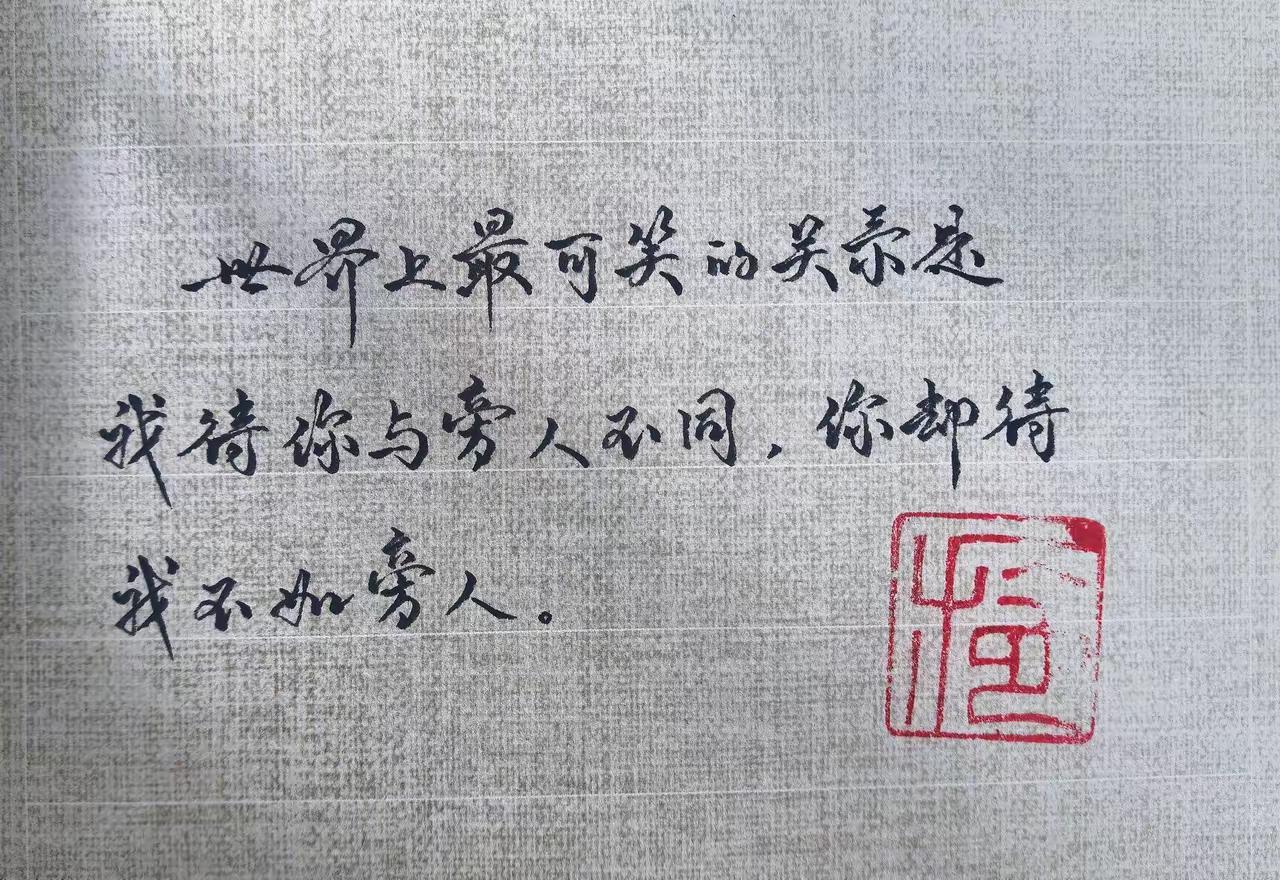 世界上最可笑的关系是
我待你与旁人不同，你却待
我不如旁人。